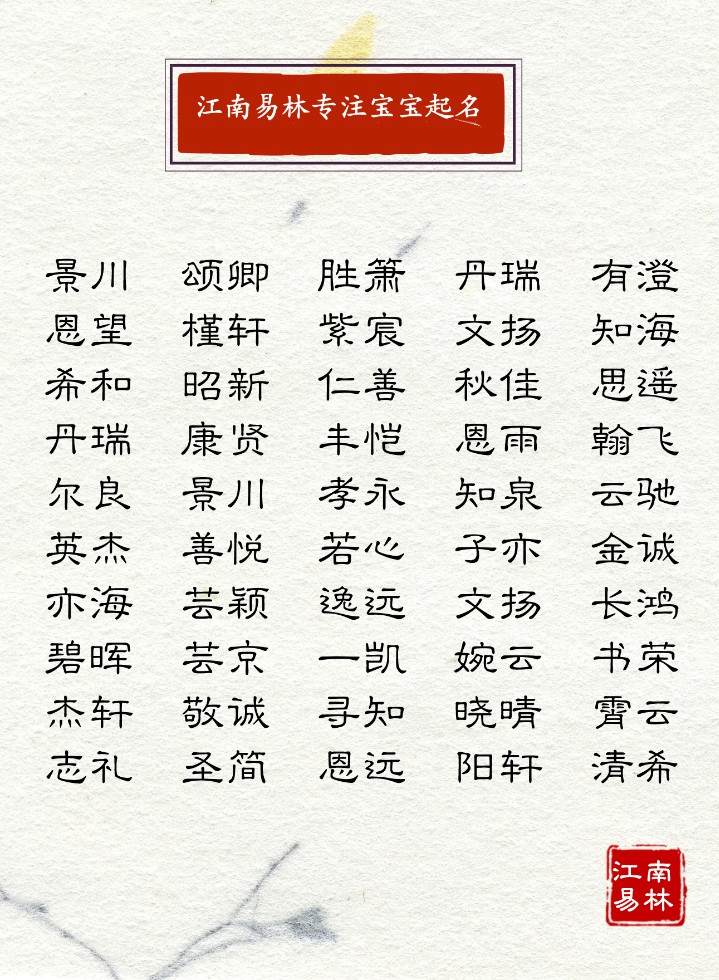 江南易林专注宝宝起名
景川 颂卿 胜箫 丹瑞 有澄
恩望 槿轩 紫宸 文扬 知海
希和 昭新 仁善 秋佳 思遥
丹瑞 康贤 丰恺 恩雨 翰飞
尔良 景川 孝永 知泉 云驰
英杰 善悦 若心 子亦 金诚
亦海 芸颖 逸远 文扬 长鸿
碧晖 芸京 一凯 婉云 书荣
杰轩 敬诚 寻知 晓晴 霄云
志礼 圣简 恩远 阳轩 清希
江南
易林